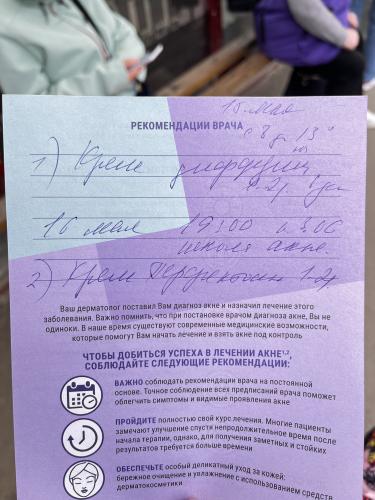 15 мая
РЕКОМЕНДАЦИИ ВРАЧА
с 8 до 13
1) Крем
1-2р. в д
16 мая 19:00
школа акне.
2) Крем 1-2р
Ваш дерматолог поставил Вам диагноз акне и назначил лечение этого
заболевания. Важно помнить, что при постановке врачом диагноза акне, Вы не
одиноки. В наше время существуют современные медицинские возможности,
которые помогут Вам начать лечение и взять акне под контроль
ЧТОБЫ ДОБИТЬСЯ УСПЕХА В ЛЕЧЕНИИ АКНЕ¹,²,
СОБЛЮДАЙТЕ СЛЕДУЮЩИЕ РЕКОМЕНДАЦИИ:
ВАЖНО соблюдать рекомендации врача на постоянной
основе. Точное соблюдение всех предписаний врача поможет
облегчить симптомы и видимые проявления акне
ПРОЙДИТЕ полностью свой курс лечения. Многие пациенты
замечают улучшение спустя непродолжительное время после
начала терапии, однако, для получения заметных и стойких
результатов требуется больше времени
ОБЕСПЕЧЬТЕ особый деликатный уход за кожей:
бережное очищение и увлажнение с использованием средств
дерматокосметики